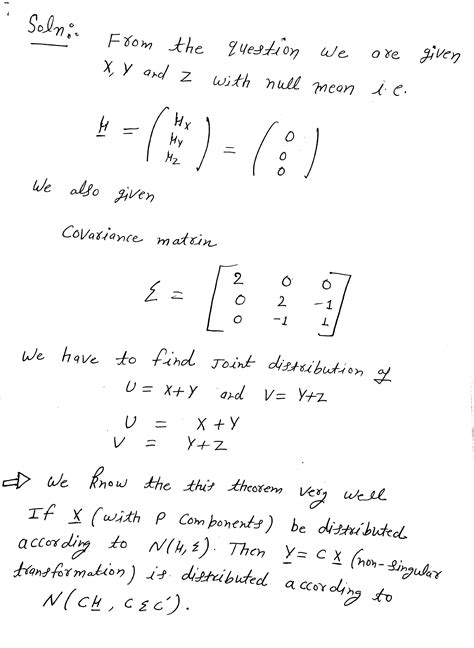 Soln:
From the question we are given
X, Y and Z with null mean i.e.
μ = (μx μy μz) = (0 0 0)
We also given
Covariance matrin
Σ = [2 0 0
0 2 -1
0 -1 1]
We have to find Joint distribution of
U = X+Y and V = Y+Z
U = X+Y
V = Y+Z
⇒ We know the this theorem very well
If X (with P components) be distributed
according to N(μ, Σ). Then Y = C X (non-singular
transformation) is distributed according to
N(Cμ, CΣC').